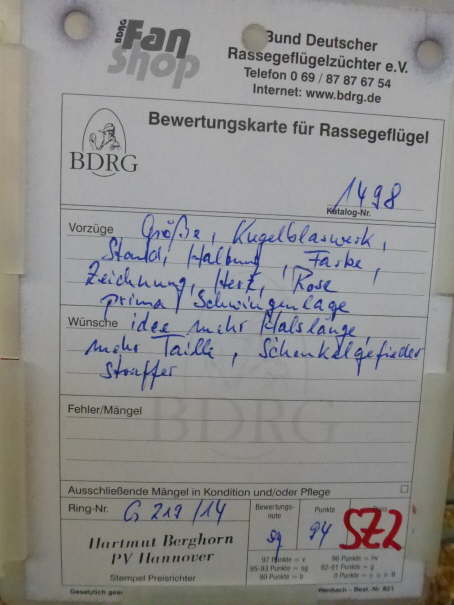 BDRG Fan Shop
Bund Deutscher
Rassegeflügelzüchter e.V.
Telefon 0 69 / 87 87 67 54
Internet: www.bdrg.de
BDRG
Bewertungskarte für Rassegeflügel
1498
Katalog-Nr.
Vorzüge Größe, Kugelblaswerk,
Stand, Haltung, Farbe,
Zeichnung, Herz, Rose
prima Schwingenlage
Wünsche idee mehr Halslänge,
mehr Taille, Schenkelgefieder
straffer
Fehler/Mängel
BDRG
Ausschließende Mängel in Kondition und/oder Pflege
Ring-Nr. G 219/14
Bewertungs-
note
sg
Punkte
94
SZ2
Hartmut Berghorn
PV Hannover
Stempel Preisrichter
97 Punkte = v
96 Punkte = hv
95-93 Punkte = sg
92-91 Punkte = g
90 Punkte = b
Gesetzlich gesch
Best. Nr. 821